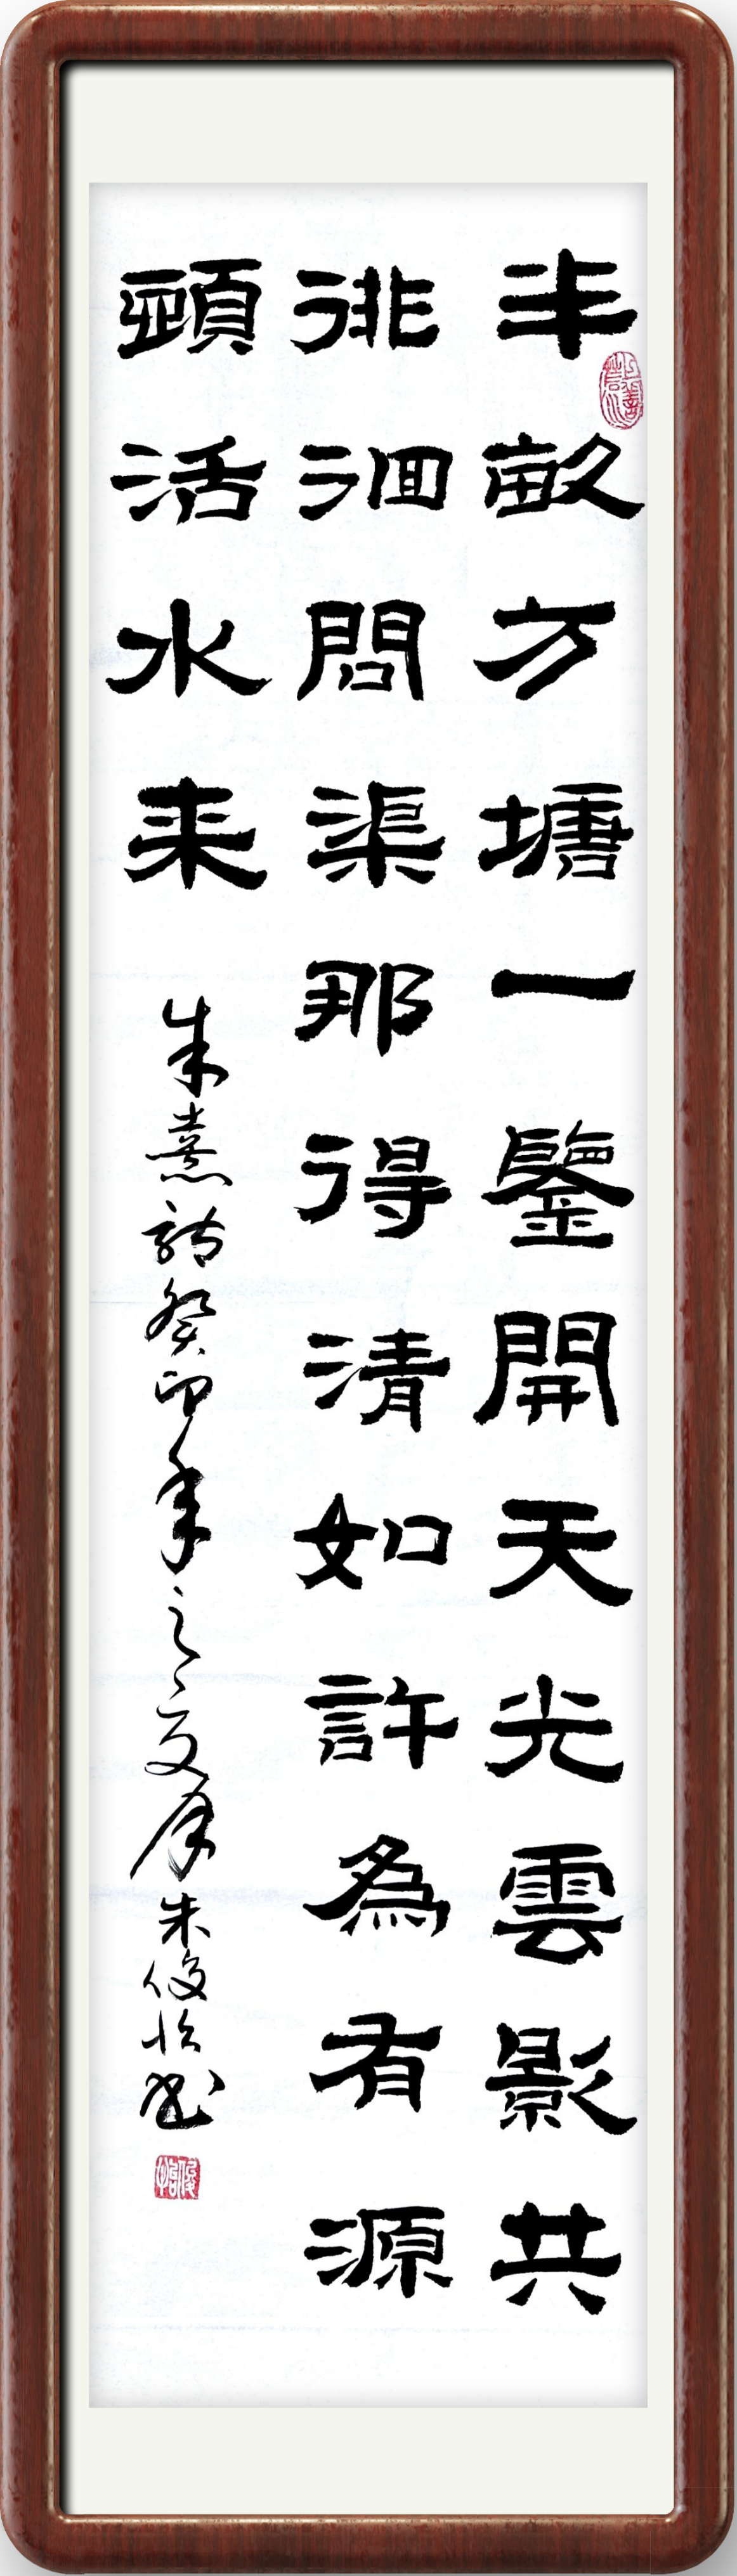 半畝方塘一鑒開天光雲影共
徘徊問渠那得清如許為有源
頭活水来
朱熹詩癸卯年之夏月朱俊怡书